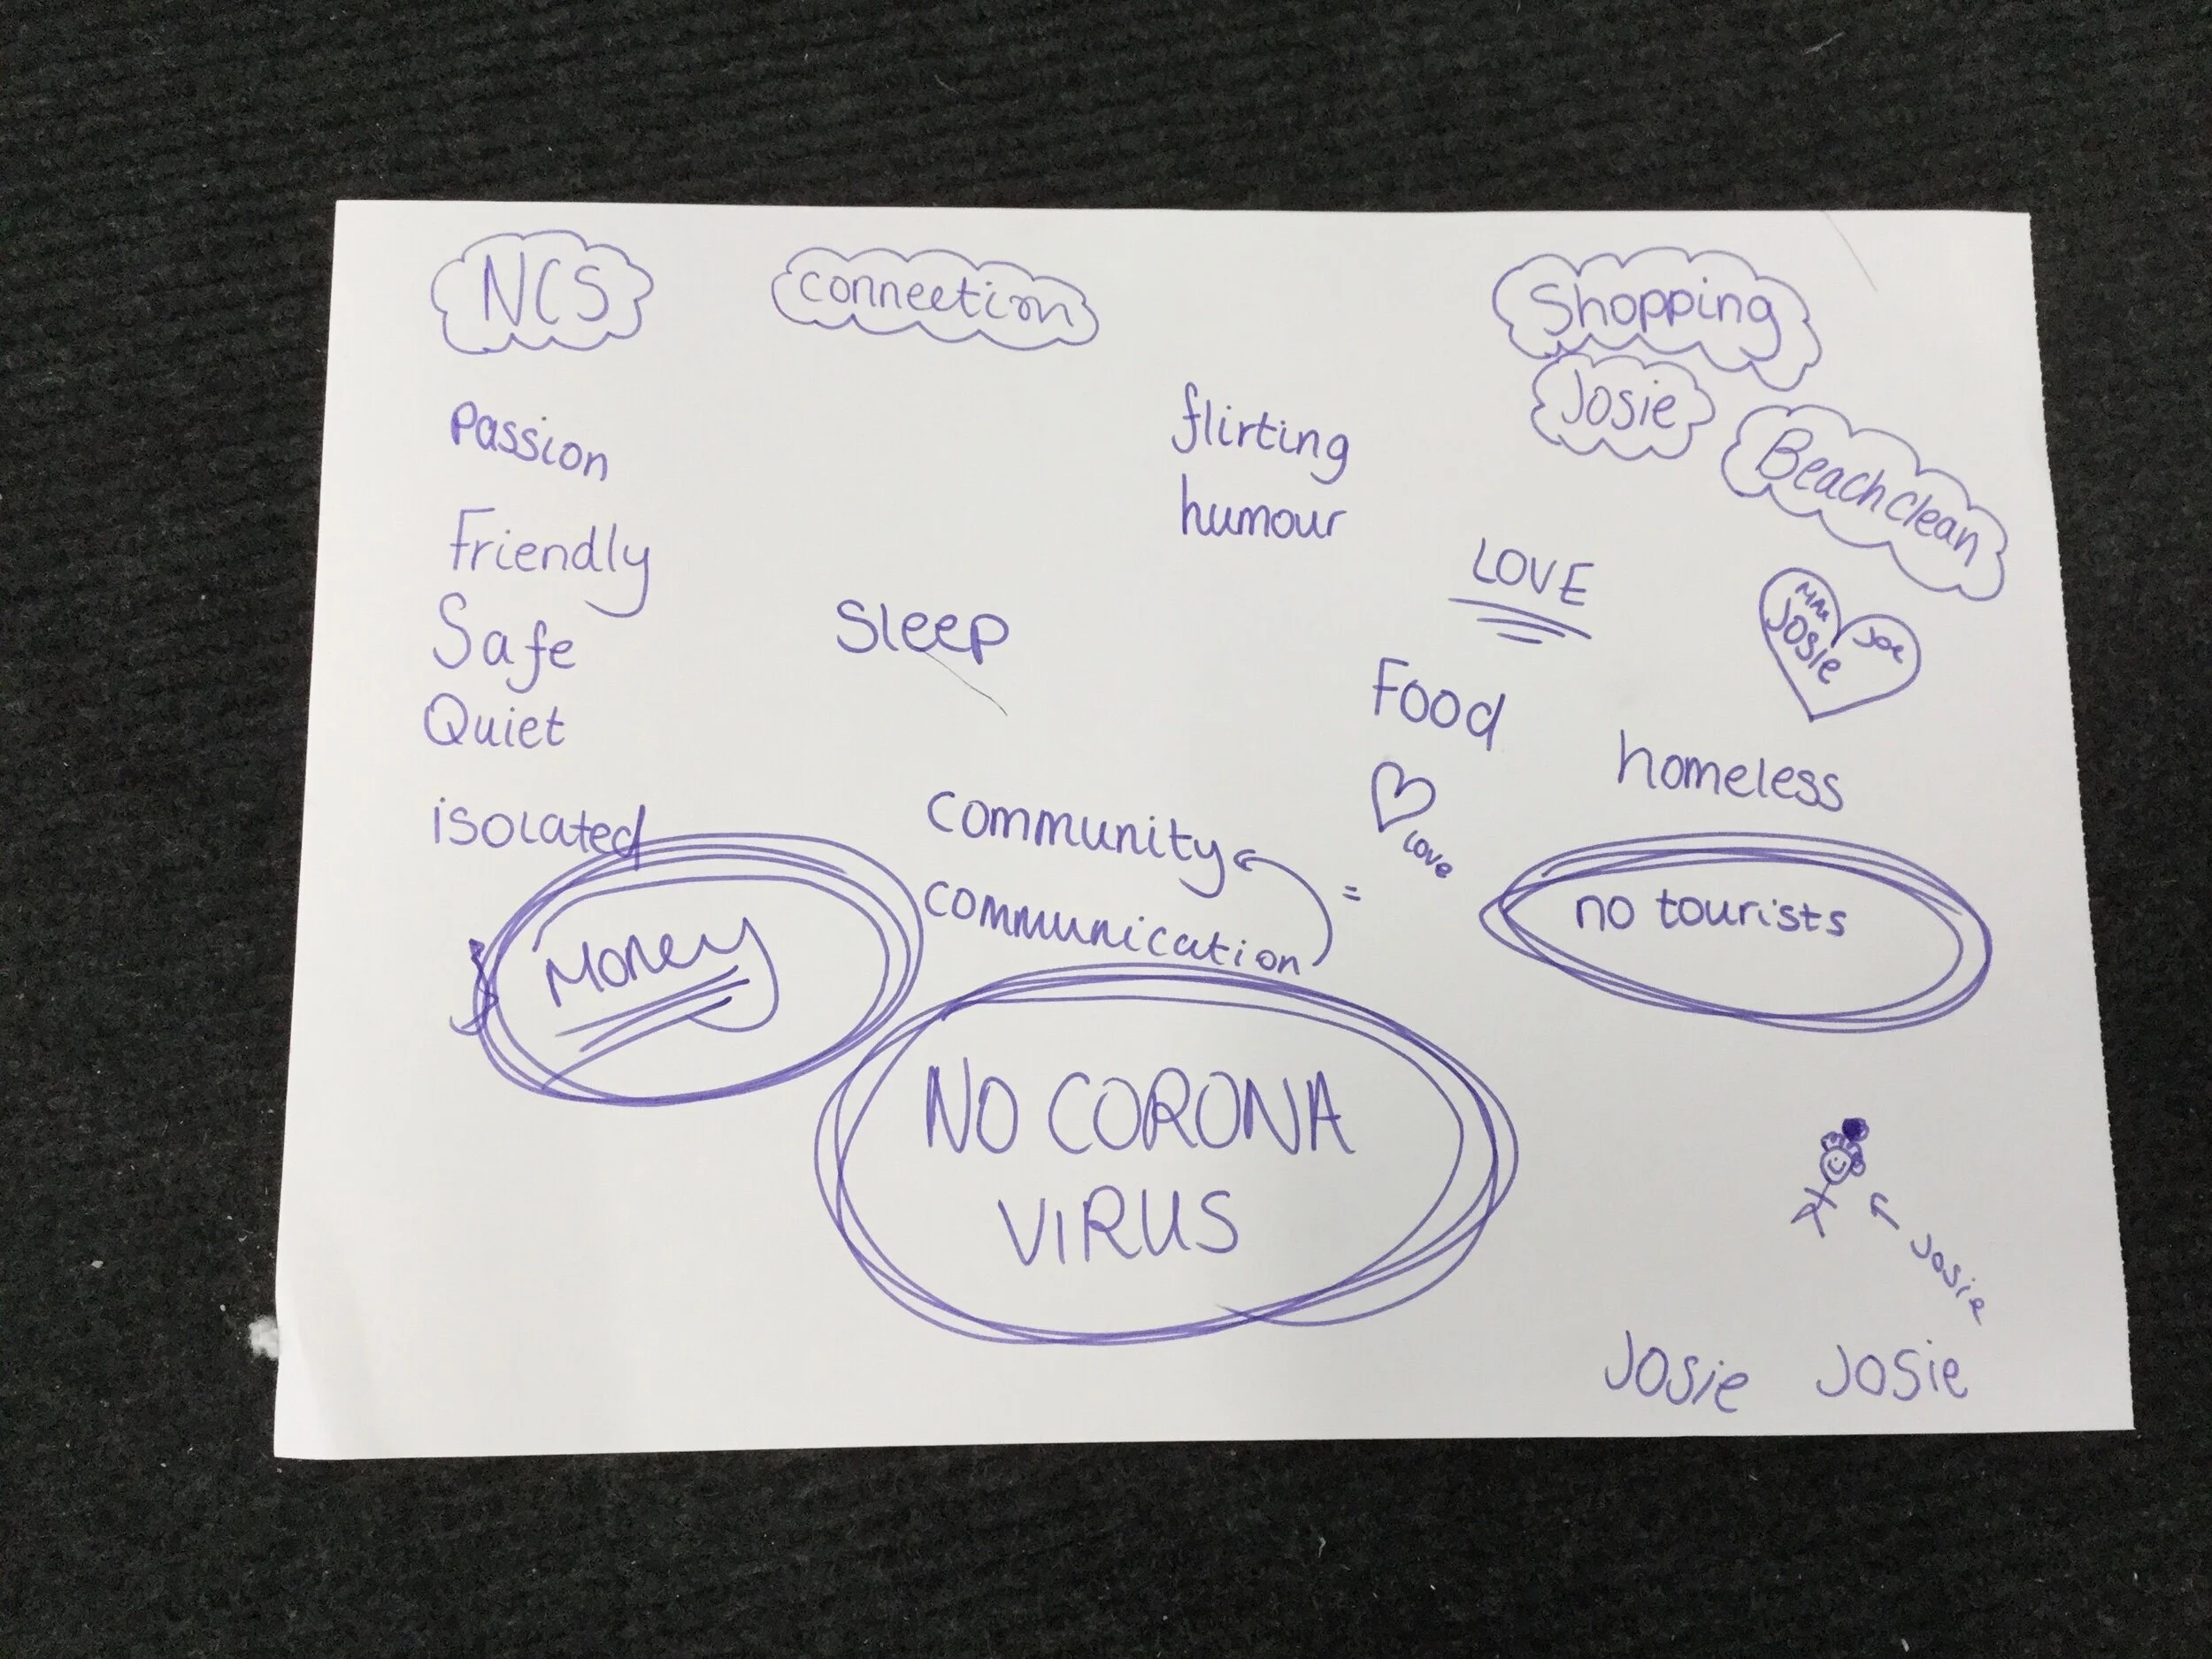 NCS
connection
Shopping
Josie
Beach clean
Passion
flirting
humour
Friendly
LOVE
Safe
Sleep
Josie
Joe
Food
Quiet
homeless
isolated
community
love
communication
=
no tourists
Money
NO CORONA
VIRUS
Josie
Josie Josie